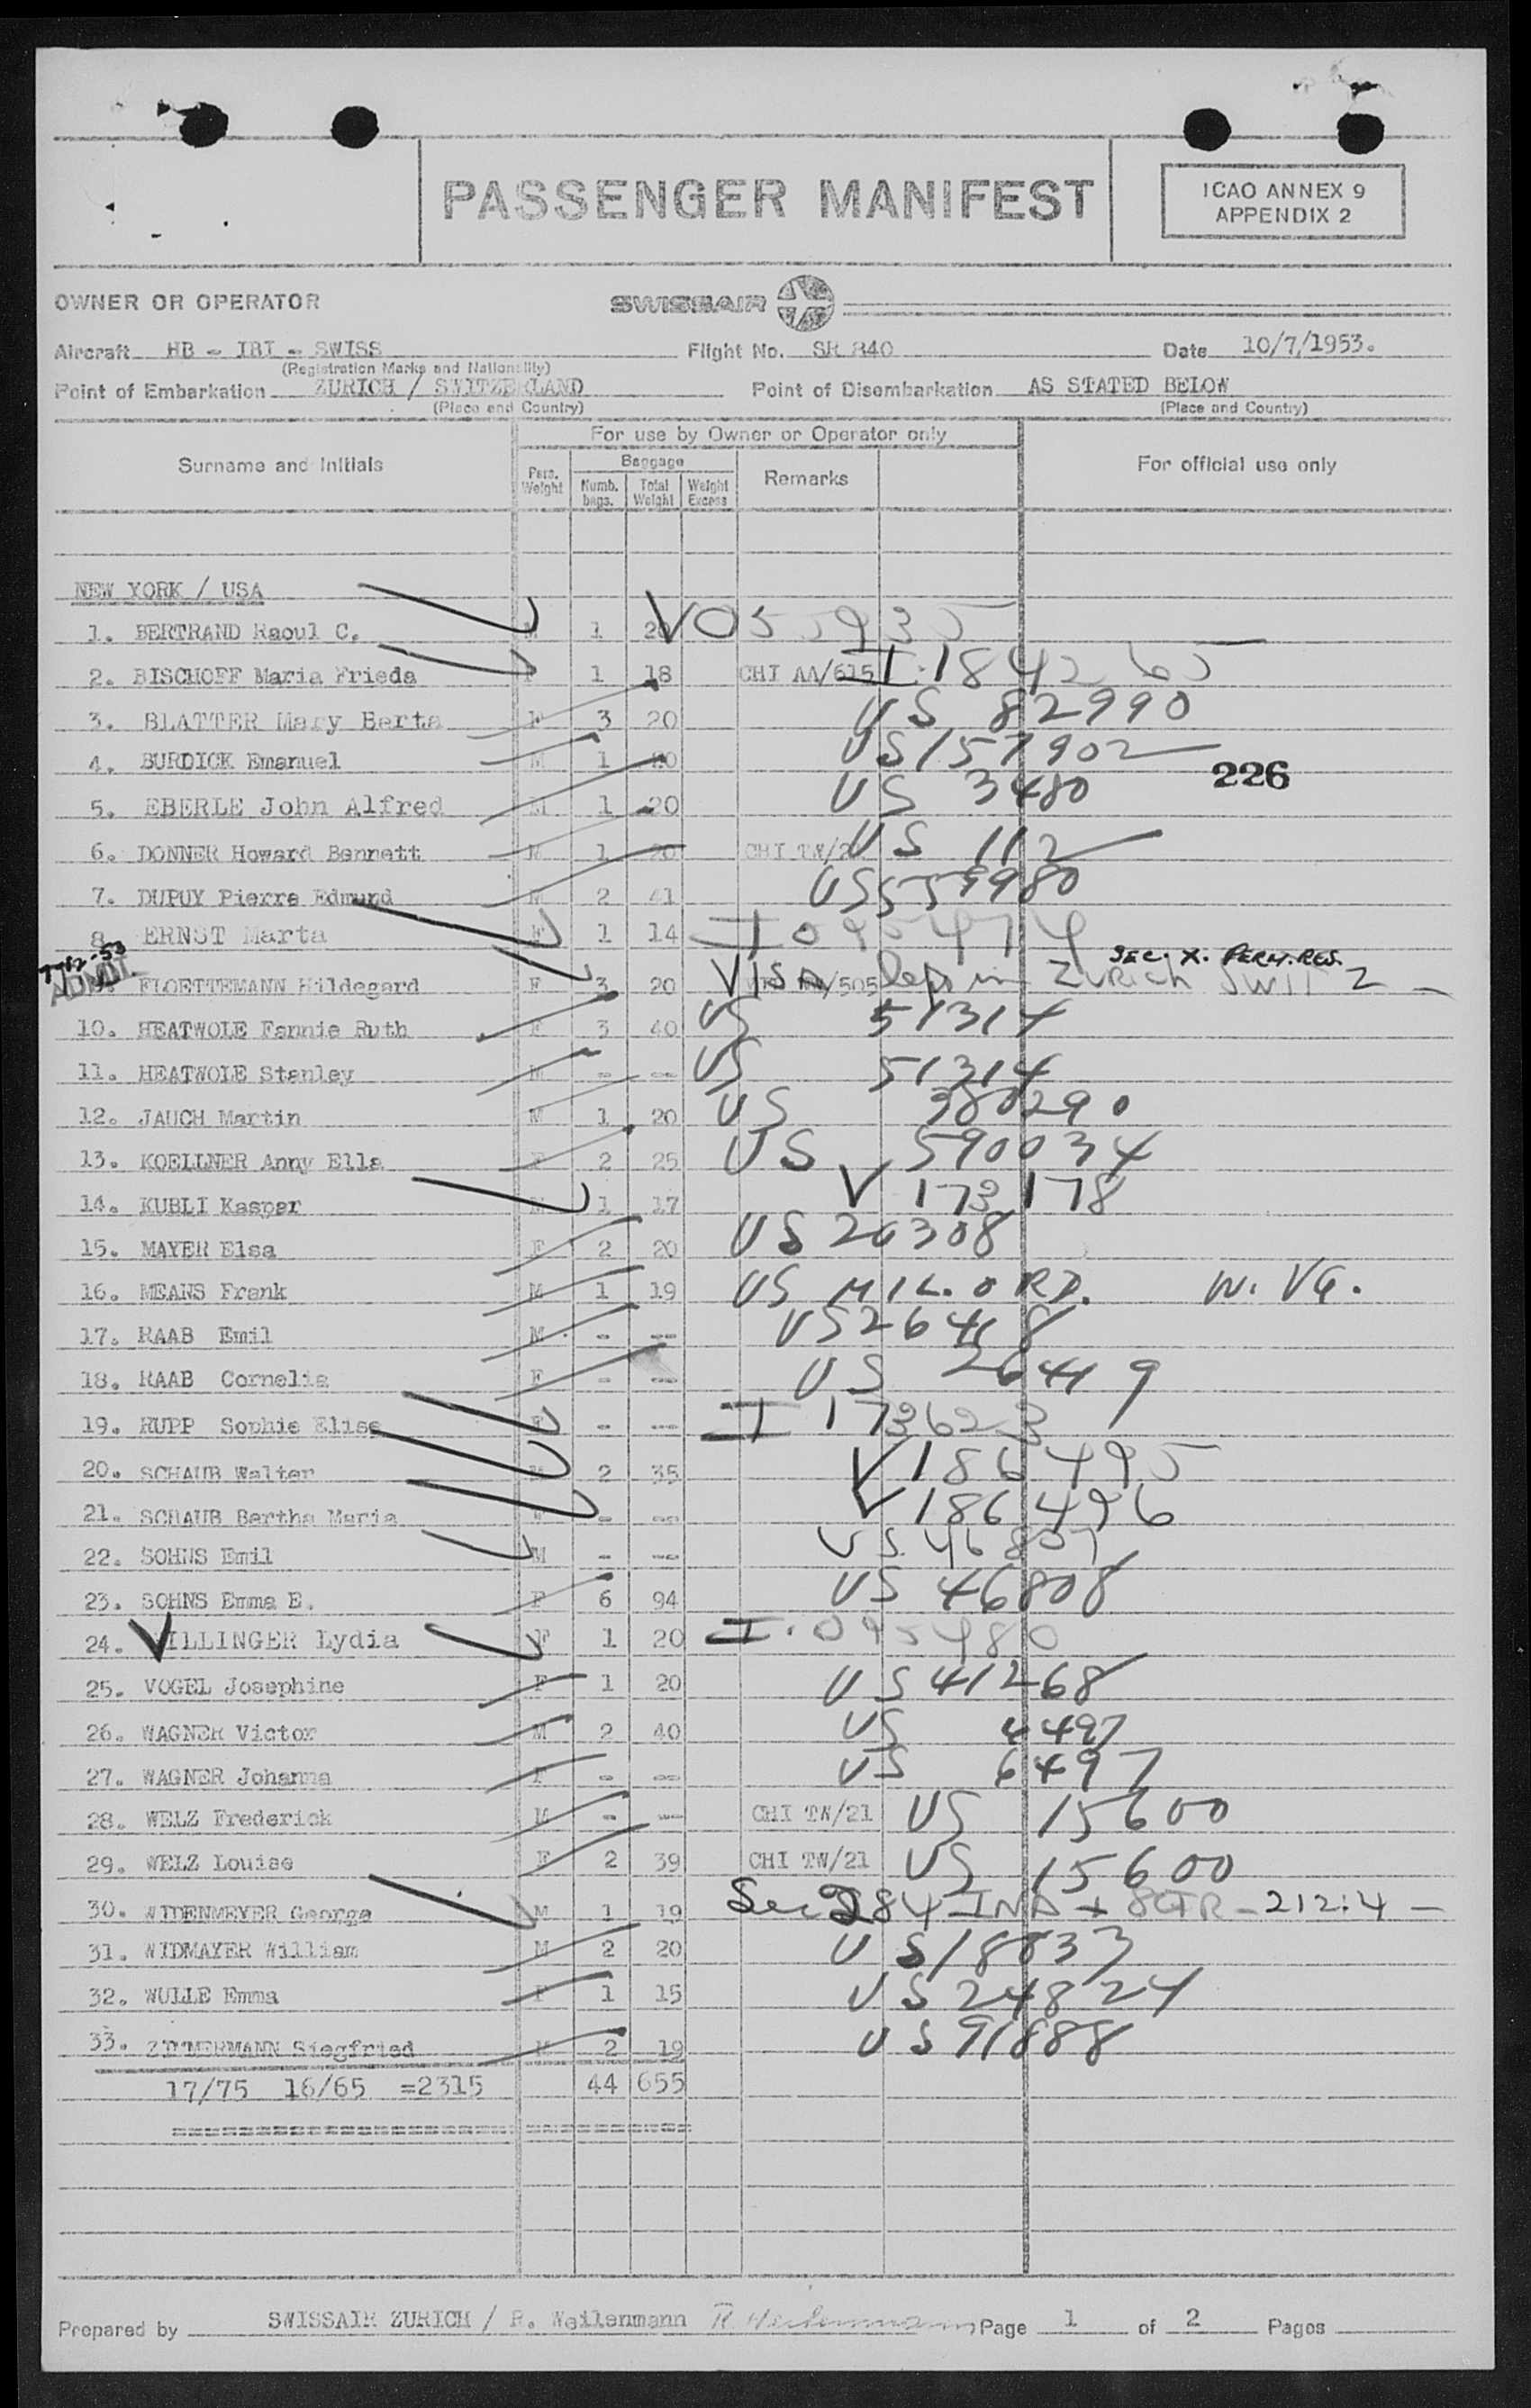 PASSENGER MANIFEST
ICAO ANNEX 9
APPENDIX 2
OWNER OR OPERATOR SWISSAIR
Aircraft HB - IBI - SWISS Flight No. SR 840 Date 10/7/1953.
(Registration Marks and Nationality)
Point of Embarkation ZURICH / SWITZERLAND Point of Disembarkation AS STATED BELOW
(Place and Country) (Place and Country)
For use by Owner or Operator only
Surname and Initials Pers. Weight Baggage Numb. bags. Total Weight Weight Excess Remarks For official use only
NEW YORK / USA
1. BERTRAND Raoul C. M 1 20 V055935
2. BISCHOFF Maria Frieda F 1 18 CHI AA/615 I.184265
3. BLATTER Mary Berta F 3 20 US 82990
4. BURDICK Emanuel M 1 20 US 157902
226
5. EBERLE John Alfred M 1 20 US 3480
6. DONNER Howard Bennett M 1 20 CHI TW/2 US 112
7. DUPUY Pierre Edmund M 2 41 US 559980
8. ERNST Marta F 1 14 I
SEC. X. PERM. RES.
7-12-53
ADMIT.
9. FLOETTEMANN Hildegard F 3 20 /505 VISA Zurich SWITZ
10. HEATWOLE Fannie Ruth F 3 40 US 51314
11. HEATWOLE Stanley M - -- US 51314
12. JAUCH Martin M 1 20 US 380290
13. KOELLNER Anny Ella F 2 25 US 590034
14. KUBLI Kasper M 1 17 V 173178
15. MAYER Elsa F 2 20 US 26308
16. MEANS Frank M 1 19 US MIL. ORD. W. VA.
17. RAAB Emil M - -- US 26418
18. RAAB Cornelia F - -- US 26419
19. RUPP Sophie Elise F - -- I 173623
20. SCHAUB Walter M 2 35 V186495
21. SCHAUB Bertha Maria F - -- V186496
22. SOHNS Emil M - -- US 46807
23. SOHNS Emma E. F 6 94 US 46808
24. VILLINGER Lydia F 1 20 I.095480
25. VOGEL Josephine F 1 20 US 41268
26. WAGNER Victor M 2 40 US 6497
27. WAGNER Johanna F - -- US 6497
28. WELZ Frederick M - -- CHI TW/21 US 15600
29. WELZ Louise F 2 39 CHI TW/21 US 15600
30. WIDENMEYER George M 1 19 Sec 284 INA + 8CFR - 212:4 -
31. WIDMAYER William M 2 20 US 18833
32. WULLE Emma F 1 15 US 24824
33. ZIMMERMANN Siegfried M 2 19 US 91888
17/75 16/65 =2315 44 655
Prepared by SWISSAIR ZURICH / R. Weilenmann R Weilenmann Page 1 of 2 Pages